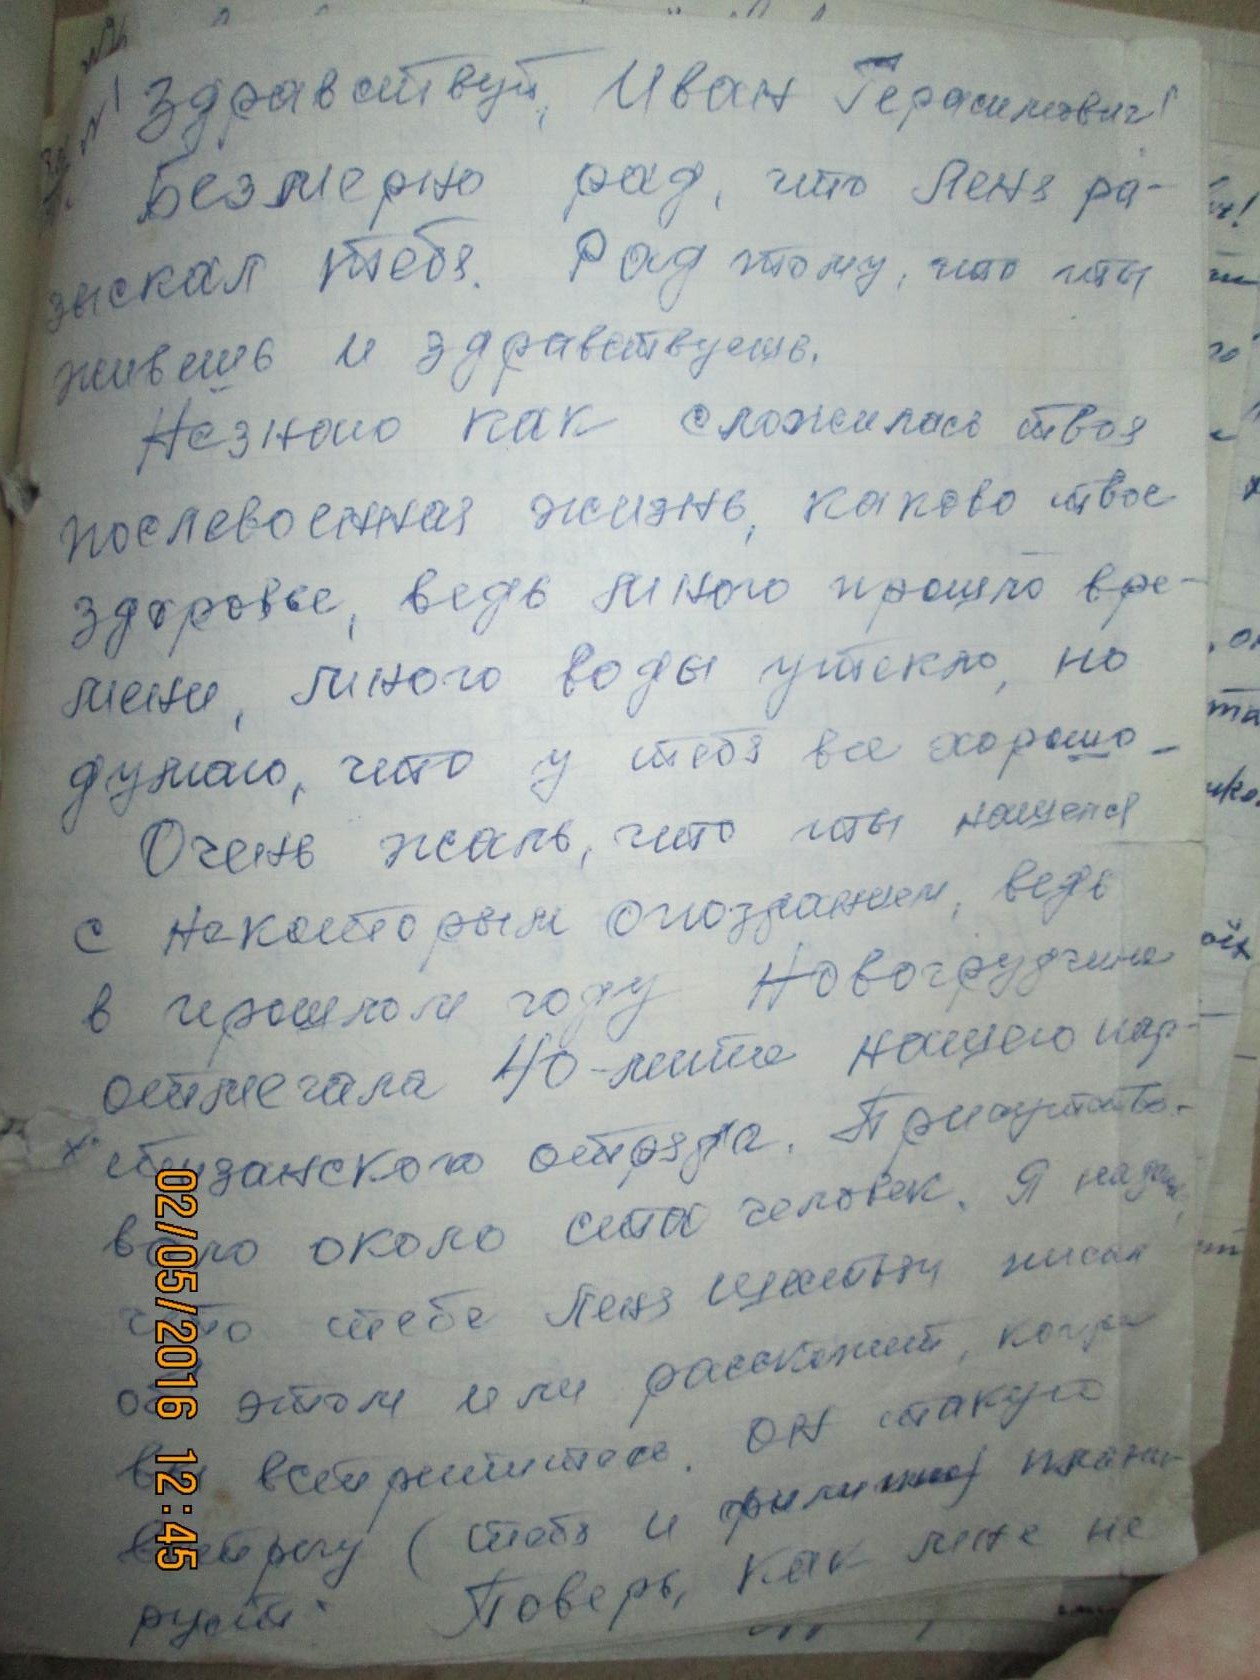 Здравствуй, Иван Герасимович!
Безмерно рад, что Леня ра-
зыскал тебя. Рад тому, что ты
живешь и здравствуешь.
Не знаю как сложилась твоя
послевоенная жизнь, каково твое
здоровье, ведь много прошло вре-
мени, много воды утекло, но
думаю, что у тебя все хорошо.
Очень жаль, что ты нашелся
с некоторым опозданием, ведь
в прошлом году Новогрудчина
отмечала 40-летие нашего пар-
тизанского отряда. Присутство-
вало около ста человек. Я надеюсь,
что тебе Леня писал
об этом или расскажет, когда
вы встретитесь. Он такую
встречу (тебя и плани-
рует. Поверь, как мне не
02/05/2016 12:45